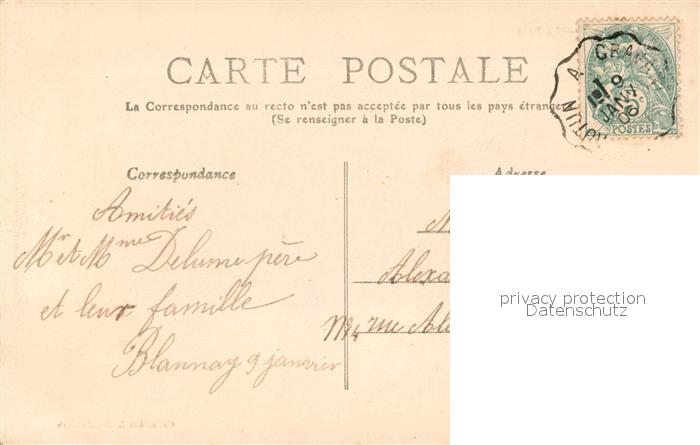 CARTE POSTALE
La Correspondance au recto n'est pas acceptée par tous les pays étrange
(Se renseigner à la Poste)
AUTUN A GRAVA
9
JANV
06
POSTES
Correspondance
Adresse
Amitiés
Mr et Mme Delume père
et leur famille
Blannay 9 janvier
Alexa
rue Ale
privacy protection
Datenschutz